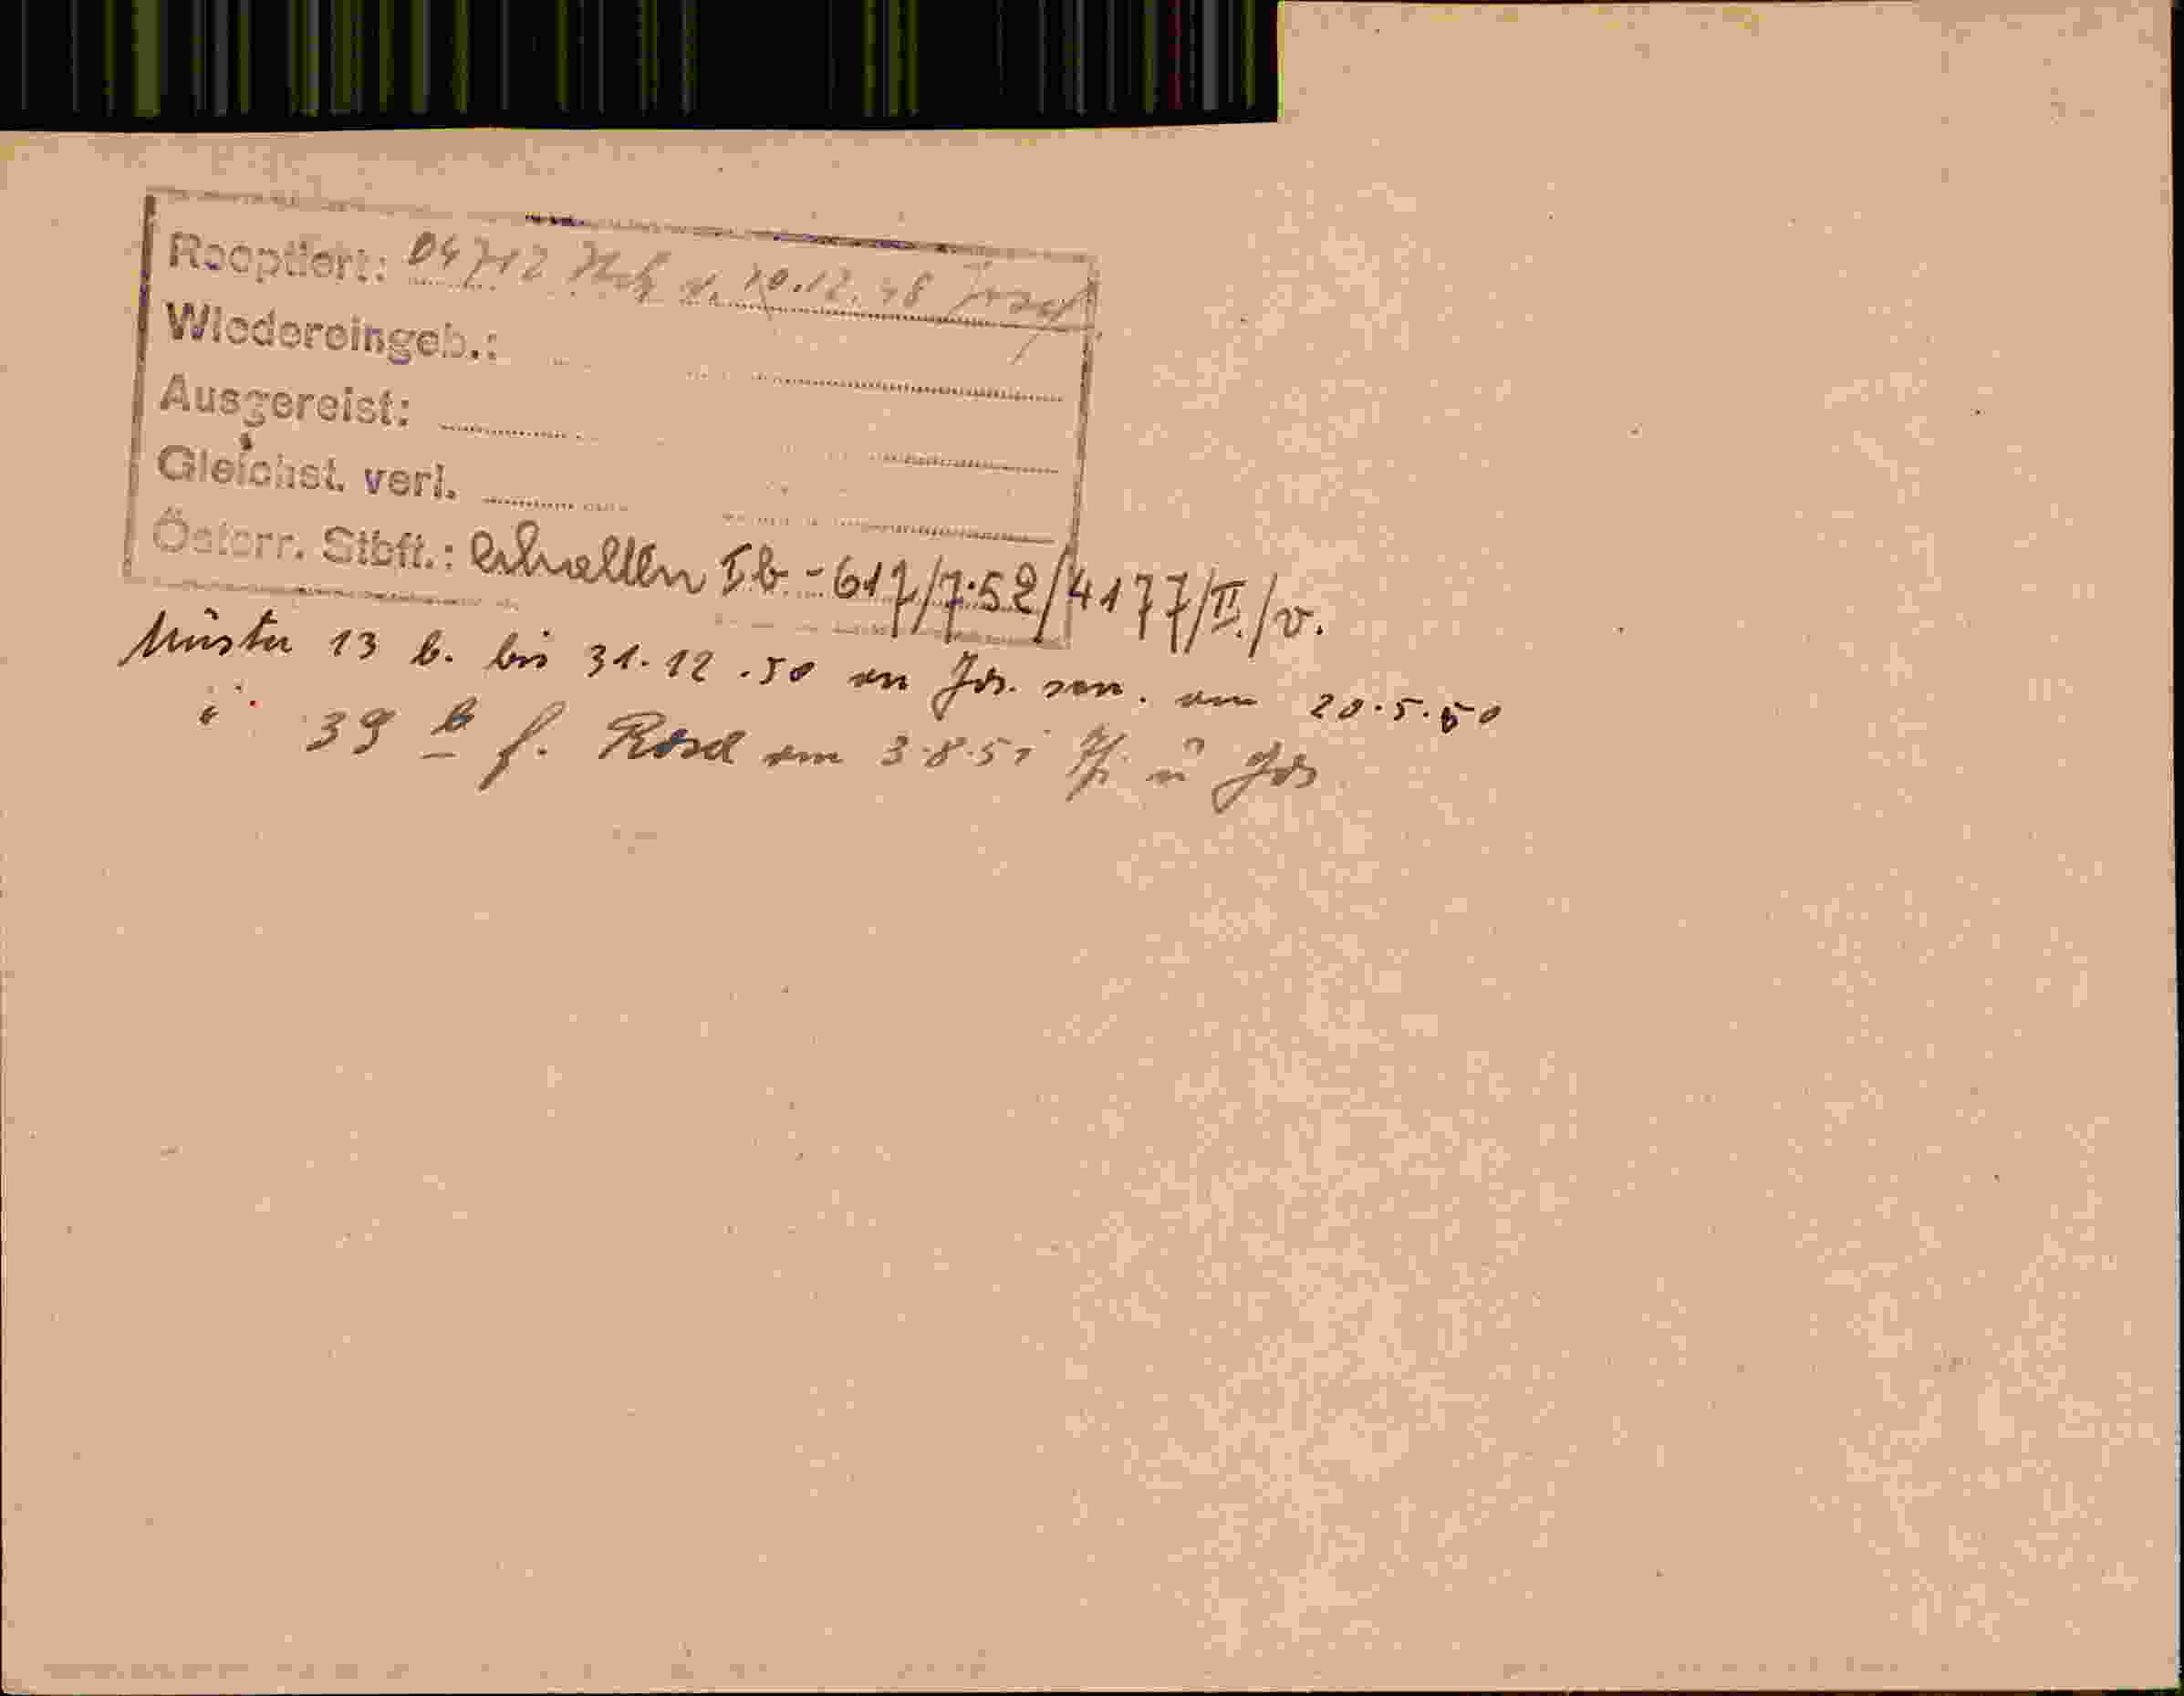 Rooptiert: 04712 v. 10.12.48 Josef
Wiedereingeb.:
Ausgereist:
Gleichst. verl.
Österr. Stbft.: erhalten Ib-617/7.52/4177/II./v.
Muster 13 b. bis 31.12.50 an Jos. sen. am 20.5.50
" 39 b f. Rosa am 3.8.51 u Jos